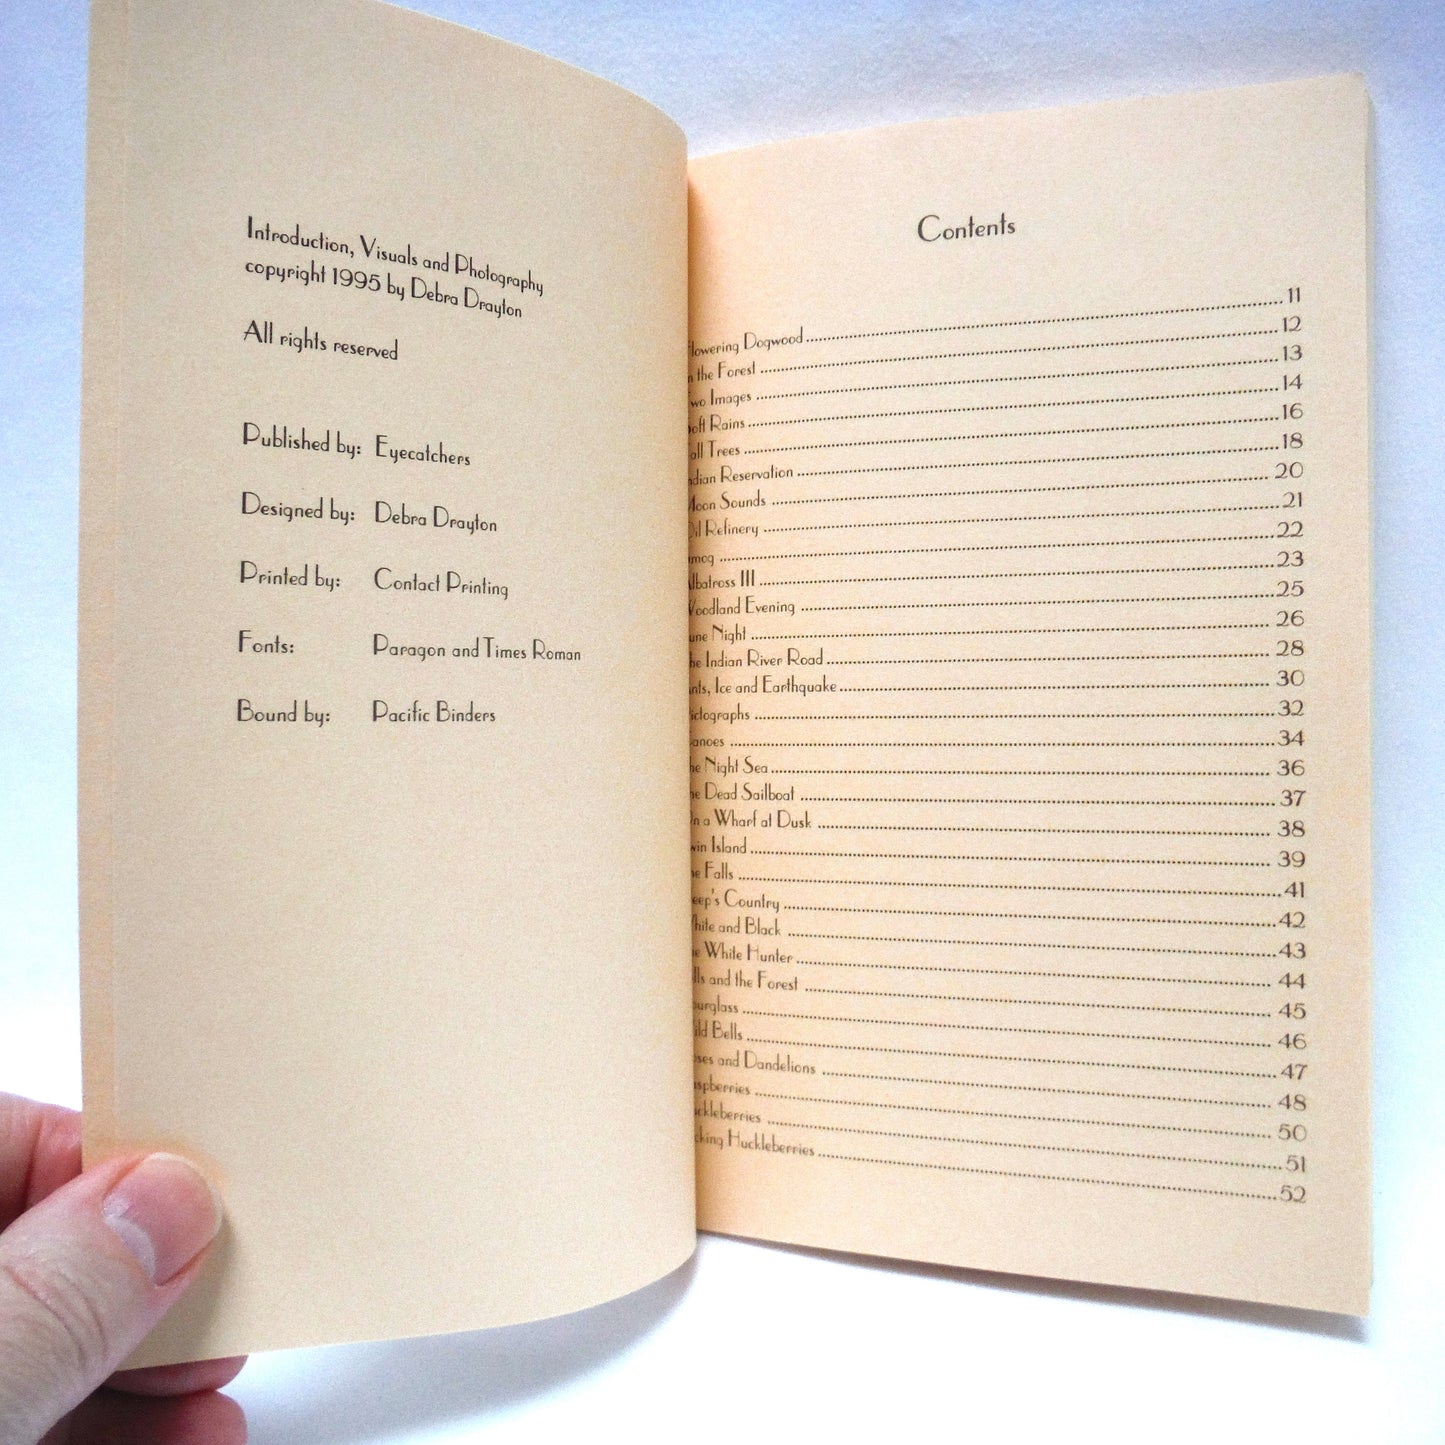 Introduction, Visuals and Photography
copyright 1995 by Debra Drayton
All rights reserved
Published by: Eyecatchers
Designed by: Debra Drayton
Printed by: Contact Printing
Fonts: Paragon and Times Roman
Bound by: Pacific Binders
Contents
lowering Dogwood 11
n the Forest 12
wo Images 13
oft Rains 14
all Trees 16
ndian Reservation 18
Moon Sounds 20
Oil Refinery 21
mog 22
lbatross III 23
Woodland Evening 25
une Night 26
he Indian River Road 28
nts, Ice and Earthquake 30
ictographs 32
anoes 34
he Night Sea 36
he Dead Sailboat 37
On a Wharf at Dusk 38
win Island 39
he Falls 41
eep's Country 42
hite and Black 43
he White Hunter 44
lls and the Forest 45
ourglass 46
ild Bells 47
oses and Dandelions 48
spberries 50
ckleberries 51
cking Huckleberries 52